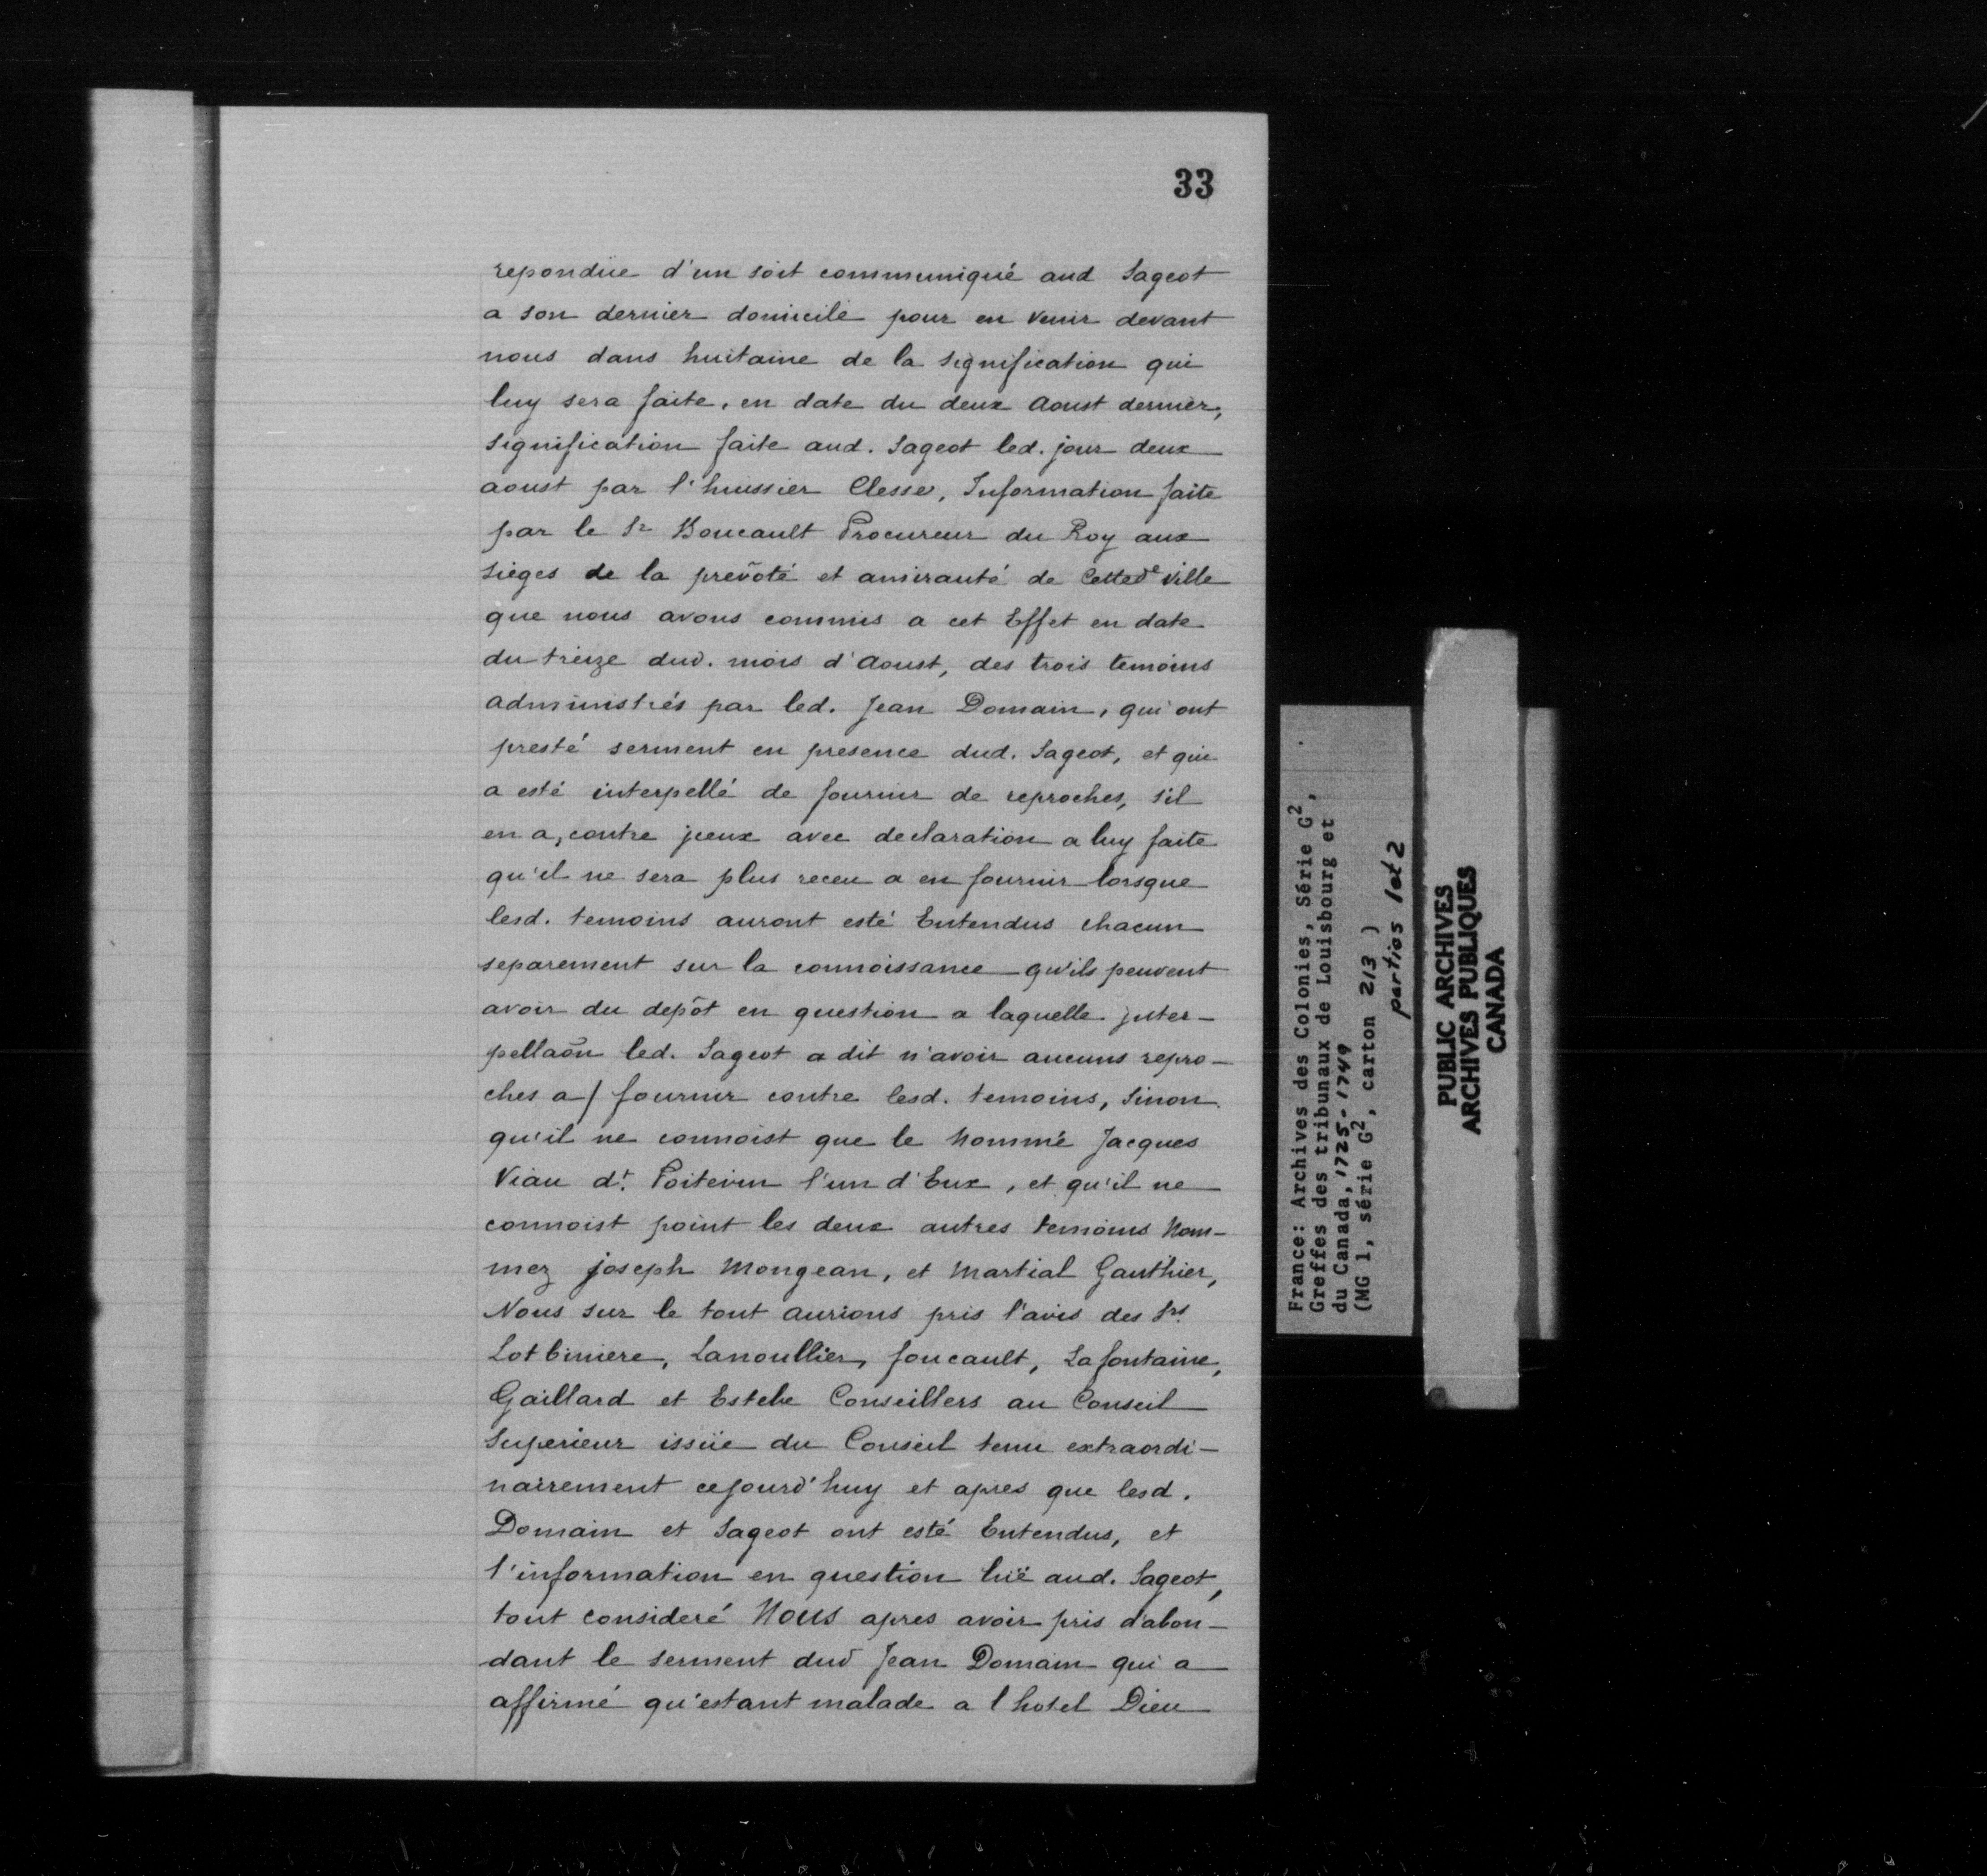 33
repondüe d'un soit communiqué aud Sageot
a son dernier domicile pour en venir devant
nous dans huitaine de la signification qui
luy sera faite, en date du deux Aoust dernier,
signification faite aud. Sageot led. jour deux
aoust par l'huissier Clesse, Information faite
par le Sr Boucault Procureur du Roy aux
sieges de la prevôté et amirauté de Cette de ville
que nous avons commis a cet Effet en date
du treize dud. mois d'Aoust, des trois temoins
administrés par led. Jean Domain, qui ont
presté serment en presence dud. Sageot, et qui
a esté interpellé de fournir de reproches, s'il
en a, contre jceux avec declaration a luy faite
qu'il ne sera plus receu a en fournir lorsque
lesd. temoins auront esté Entendus chacun
separement sur la connoissance qu'ils peuvent
avoir du depôt en question a laquelle jnter-
pellaõn led. Sageot a dit n'avoir aucuns repro-
ches a / fournir contre lesd. temoins, sinon
qu'il ne connoist que le Nommé Jacques
Viau dt. Poitevin l'un d'Eux, et qu'il ne
connoist point les deux autres temoins Nom-
mez joseph Mongean, et Martial Gauthier,
Nous sur le tout aurions pris l'avis des Srs
Lotbiniere, Lanoullier, foucault, Lafontaine,
Gaillard et Estebe Conseillers au Conseil
Superieur issüe du Conseil tenu extraordi-
nairement cejourd'huy et apres que lesd.
Domain et Sageot ont esté Entendus, et
l'information en question lüe aud. Sageot,
tout consideré NOUS apres avoir pris d'abon-
dant le serment dud Jean Domain qui a
affirmé qu'estant malade a l hotel Dieu
France: Archives des Colonies, Série G2,
Greffes des tribunaux de Louisbourg et
du Canada, 1725-1749
(MG 1, série G2, carton 213 )
parties 1 et 2
PUBLIC ARCHIVES
ARCHIVES PUBLIQUES
CANADA